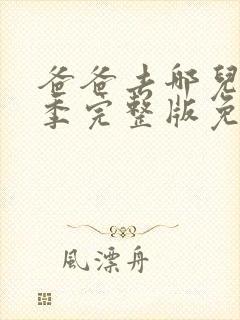 爸爸去哪兒
季完整版免
風漂舟